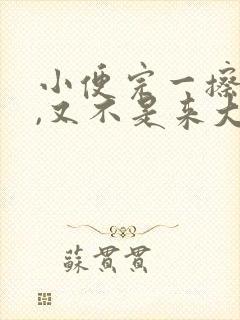 小便完一擦
,又不是来大
蘇貫貫